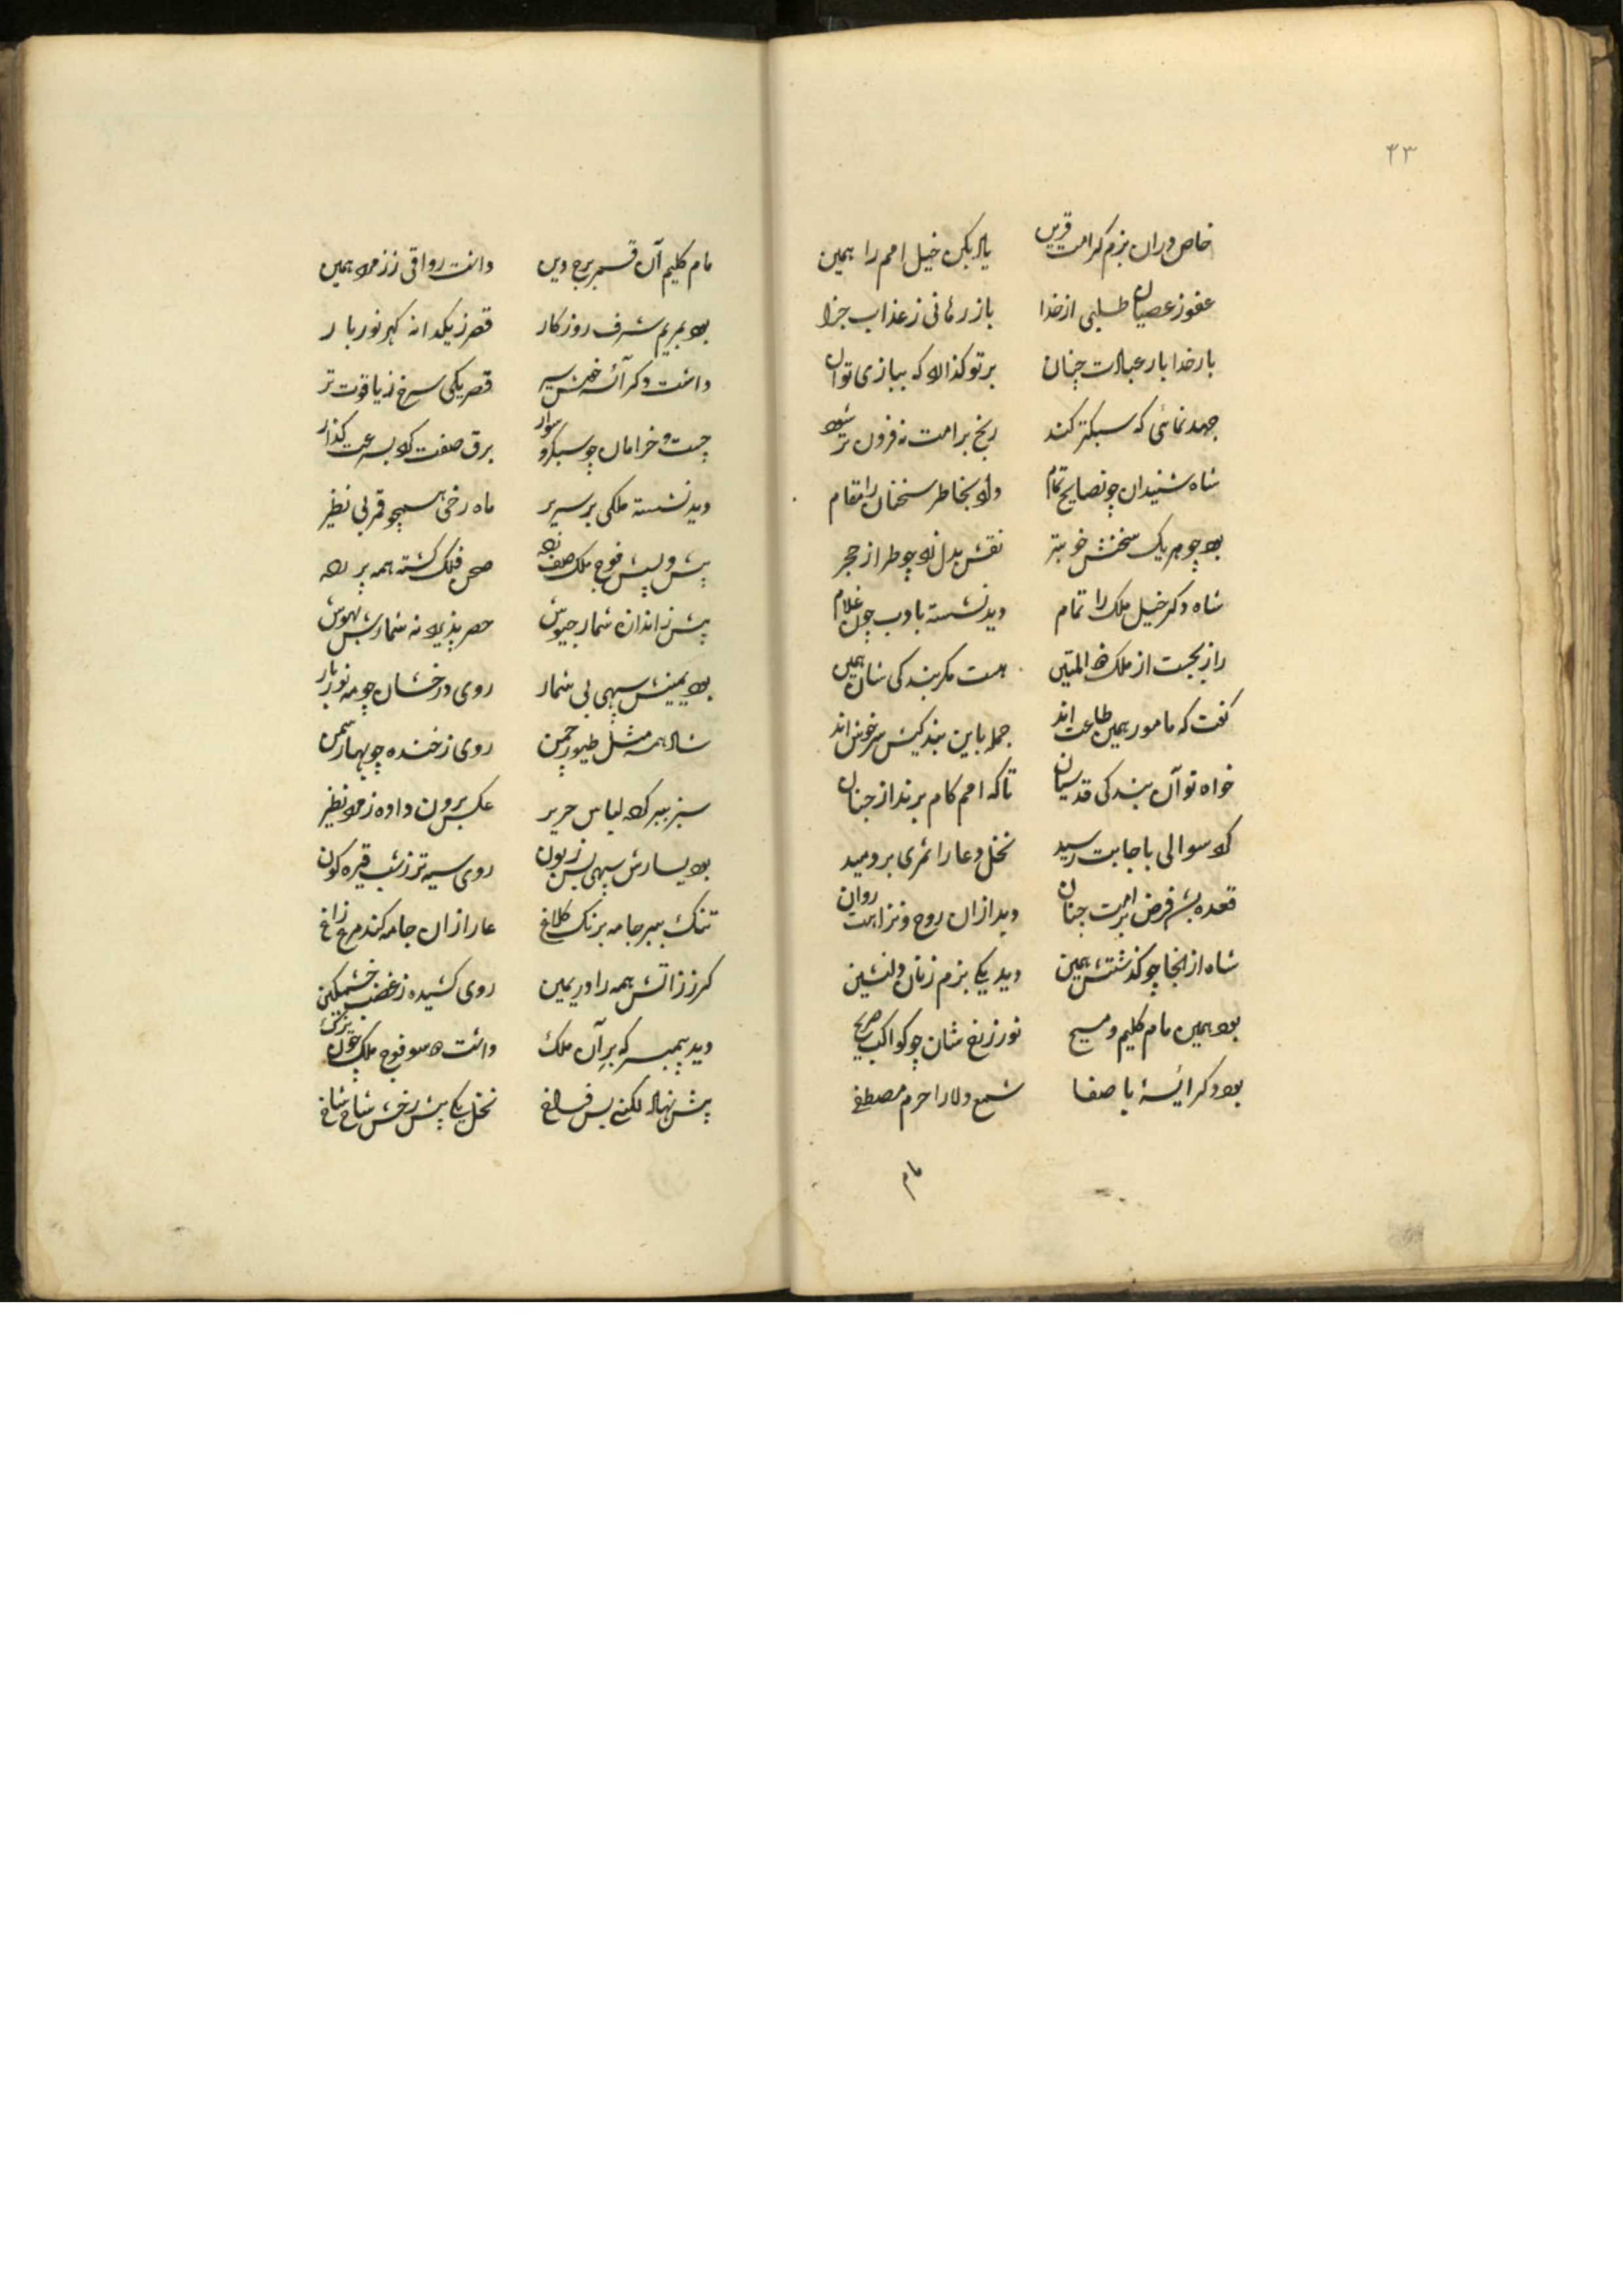 ۴۳
خاص دران بزم کرامت قرین یاد بکن خیل امم را همین
عفو ز عصیان طلبی از خدا باز رهانی ز عذاب جزا
بار خدا بار عبادت چنان بر تو گذارد که بیازی توان
جهد نمائی که سبکتر کند رنج بر امت نه فزون تر شود
شاه شنیدان چو نصایح تمام داد بخاطر سخنان را مقام
بود چو هر یک سخنش خوبتر نقش بدل زد چو طراز حجر
شاه دکر خیل ملک را تمام دید نشسته بادب چون غلام
راز بجست از ملک ذو المتین هست مکر بندکی شان همین
کفت که مامور همین طاعت اند جمله باین بندکیش سرخوش اند
خواه تو آن بندکی قدسیان تا که امم کام برند از جنان
کرد سوالی باجابت رسید نخل دعا را ثمری بر دمید
قعده بشد فرض بر امت چنان دید ازان روح و نزاهت روان
شاه از انجا چو کذشتش همین دید یکی بزم زنان دلنشین
بود همین مام کلیم و مسیح نور ز رخ شان چو کواکب صریح
بود دکر آئسۀ با صفا شمع ولا را حرم مصطفی
مام
مام کلیم آن قمر برج دین داشت رواقی ز زمرد همین
بود بمریم شرف روزکار قصر ز یکدانه کهر نور بار
داشت دکر آئسه خوش سیر قصر یکی سرخ ز یاقوت تر
چست و خرامان چو سبکرو سوار برق صفت کرد بسرعت کذار
دید نشسته ملکی بر سریر ماه رخی همچو قمر بی نظیر
پیش و پسش فوج ملک صف زده صحن فلک کشته همه پر رده
پیش ز اندازه شمار جیوش حصر پذیرد نه شمارش بهوش
بود یمینش سپهی بی شمار روی درخشان چو مه نور بار
شاد همه مثل طیور چمن روی ز خنده چو بهار سمن
سبز ببر کرد لباس حریر عکس برون داده زمرد نظیر
بود یسارش سپهی بس زبون روی سیه تر ز شب قیره کون
تنک ببر جامه برنک کلاغ عار ازان جامه کند مرغ زاغ
کرز ز اتش همه را در یمین روی کشیده ز غضب خشمکین
دید پیمبر که بر آن ملک داشت دو سو فوج ملک چون یزک
پیش نهاد لکنی بس فراخ نخل یکی پیش رخش شاخ شاخ